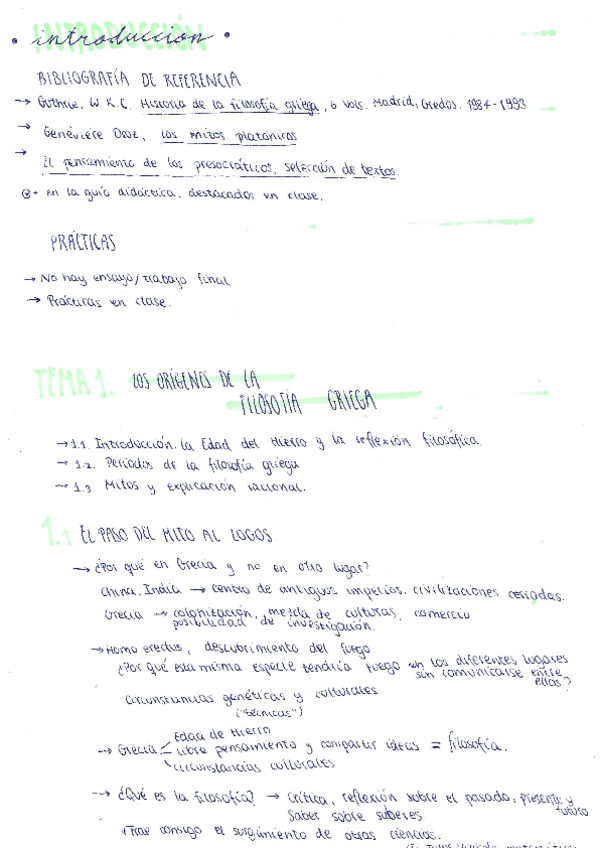 INTRODUCCIÓN
• introduccion •
BIBLIOGRAFÍA DE REFERENCIA
→ Guthrie, W.K.C. Historia de la filosofía griega, 6 Vols. Madrid, Gredos. 1984-1993
→ Geneviére Droz, los mitos platónicos
→ El pensamiento de los presocráticos, selección de textos.
+ en la guía didáctica, destacados en clase.
PRÁCTICAS
→ No hay ensayo/trabajo final
→ Prácticas en clase.
TEMA 1. LOS ORÍGENES DE LA
FILOSOFÍA GRIEGA
→ 1.1. Introducción. la Edad del Hierro y la reflexión filosófica.
→ 1.2. Periodos de la filosofía griega
→ 1.3. Mitos y explicación racional.
1.1 EL PASO DEL MITO AL LOGOS
→ ¿Por qué en Grecia y no en otro lugar?
China, India → centro de antiguos imperios, civilizaciones cerradas.
Grecia → colonización, mezcla de culturas, comercio
posibilidad de investigación.
→ Homo erectus, descubrimiento del fuego
¿Por qué esta misma especie tendría fuego en los diferentes lugares
sin comunicarse entre
ellos?
Circunstancias genéticas y culturales
("técnicas")
Edad de Hierro
→ Grecia libre pensamiento y compartir ideas = filosofía.
circunstancias culturales
→ ¿Qué es la filosofía? → Crítica, reflexión sobre el pasado, presente y
futuro
Saber sobre saberes
+ Trae consigo el surgimiento de otras ciencias.